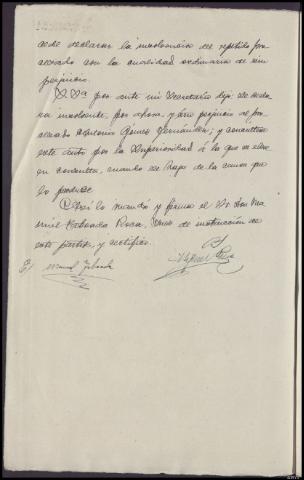 cede declarar la insolvencia del repetido pro-
cesado con la cualidad ordinaria de sin
perjuicio.
S. Sª por ante mi Secretario dijo: Se decla-
ra insolvente, por ahora, y sin perjuicio al pro-
cesado Antonio Gómez Fernández; y consúltese
este auto por la Superioridad á la que se eleve
en consulta, cuando se haga de la causa que
lo produce
Así lo mandó y firma el Sr. Don Ma-
nuel Taboada Roca, Juez de instrucción de
este partido, y certifico.
E/ Manuel Taboada